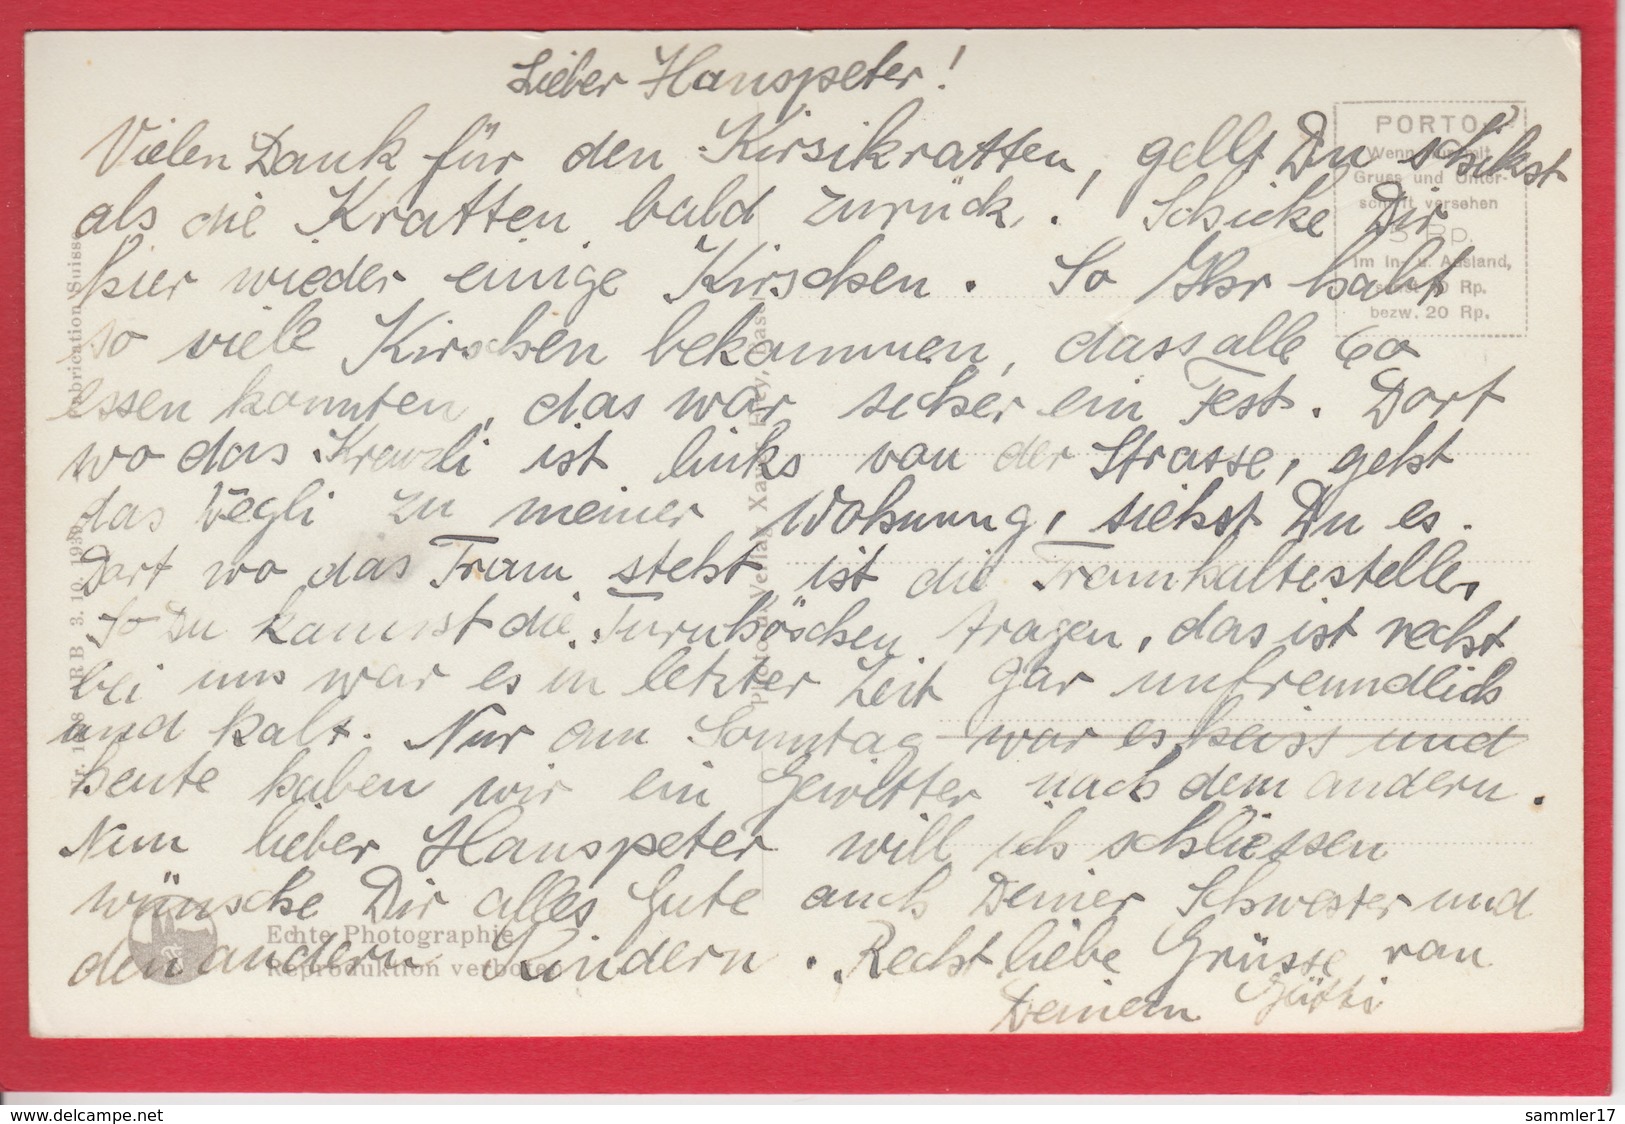 Lieber Hanspeter!
Vielen Dank für den Kirsikratten, gell Du schikst
als die Kratten bald zurück! Schicke Dir
hier wieder einige Kirschen. So Ihr habt
so viele Kirschen bekommen, dass alle 60
essen konnten, das war sicher ein Fest. Dort
wo das Kreuzli ist links von der Strasse, geht
das Wegli zu meiner Wohnung, siehst Du es.
Dort wo das Tram steht ist die Tramhaltestelle,
So Du kannst die Turnhöschen tragen, das ist recht
bei uns war es in letzter Zeit gar unfreundlich
und kalt. Nur am Sonntag war es heiss und
heute haben wir ein Gewitter nach dem andern.
Nun lieber Hanspeter will ich schliessen
wünsche Dir alles Gute auch Deiner Schwester und
den andern Kindern. Recht liebe Grüsse von
Deinem Götti
PORTO
Wenn nur mit
Gruss und Unter-
schrift versehen
5 Rp.
Im In- u. Ausland,
sonst 10 Rp.
bezw. 20 Rp.
Fabrication Suisse
BRB 3. 10. 1939
Photo u. Verlag Xaver Frey, Basel
Echte Photographie
Reproduktion verboten
www.delcampe.net
sammler17